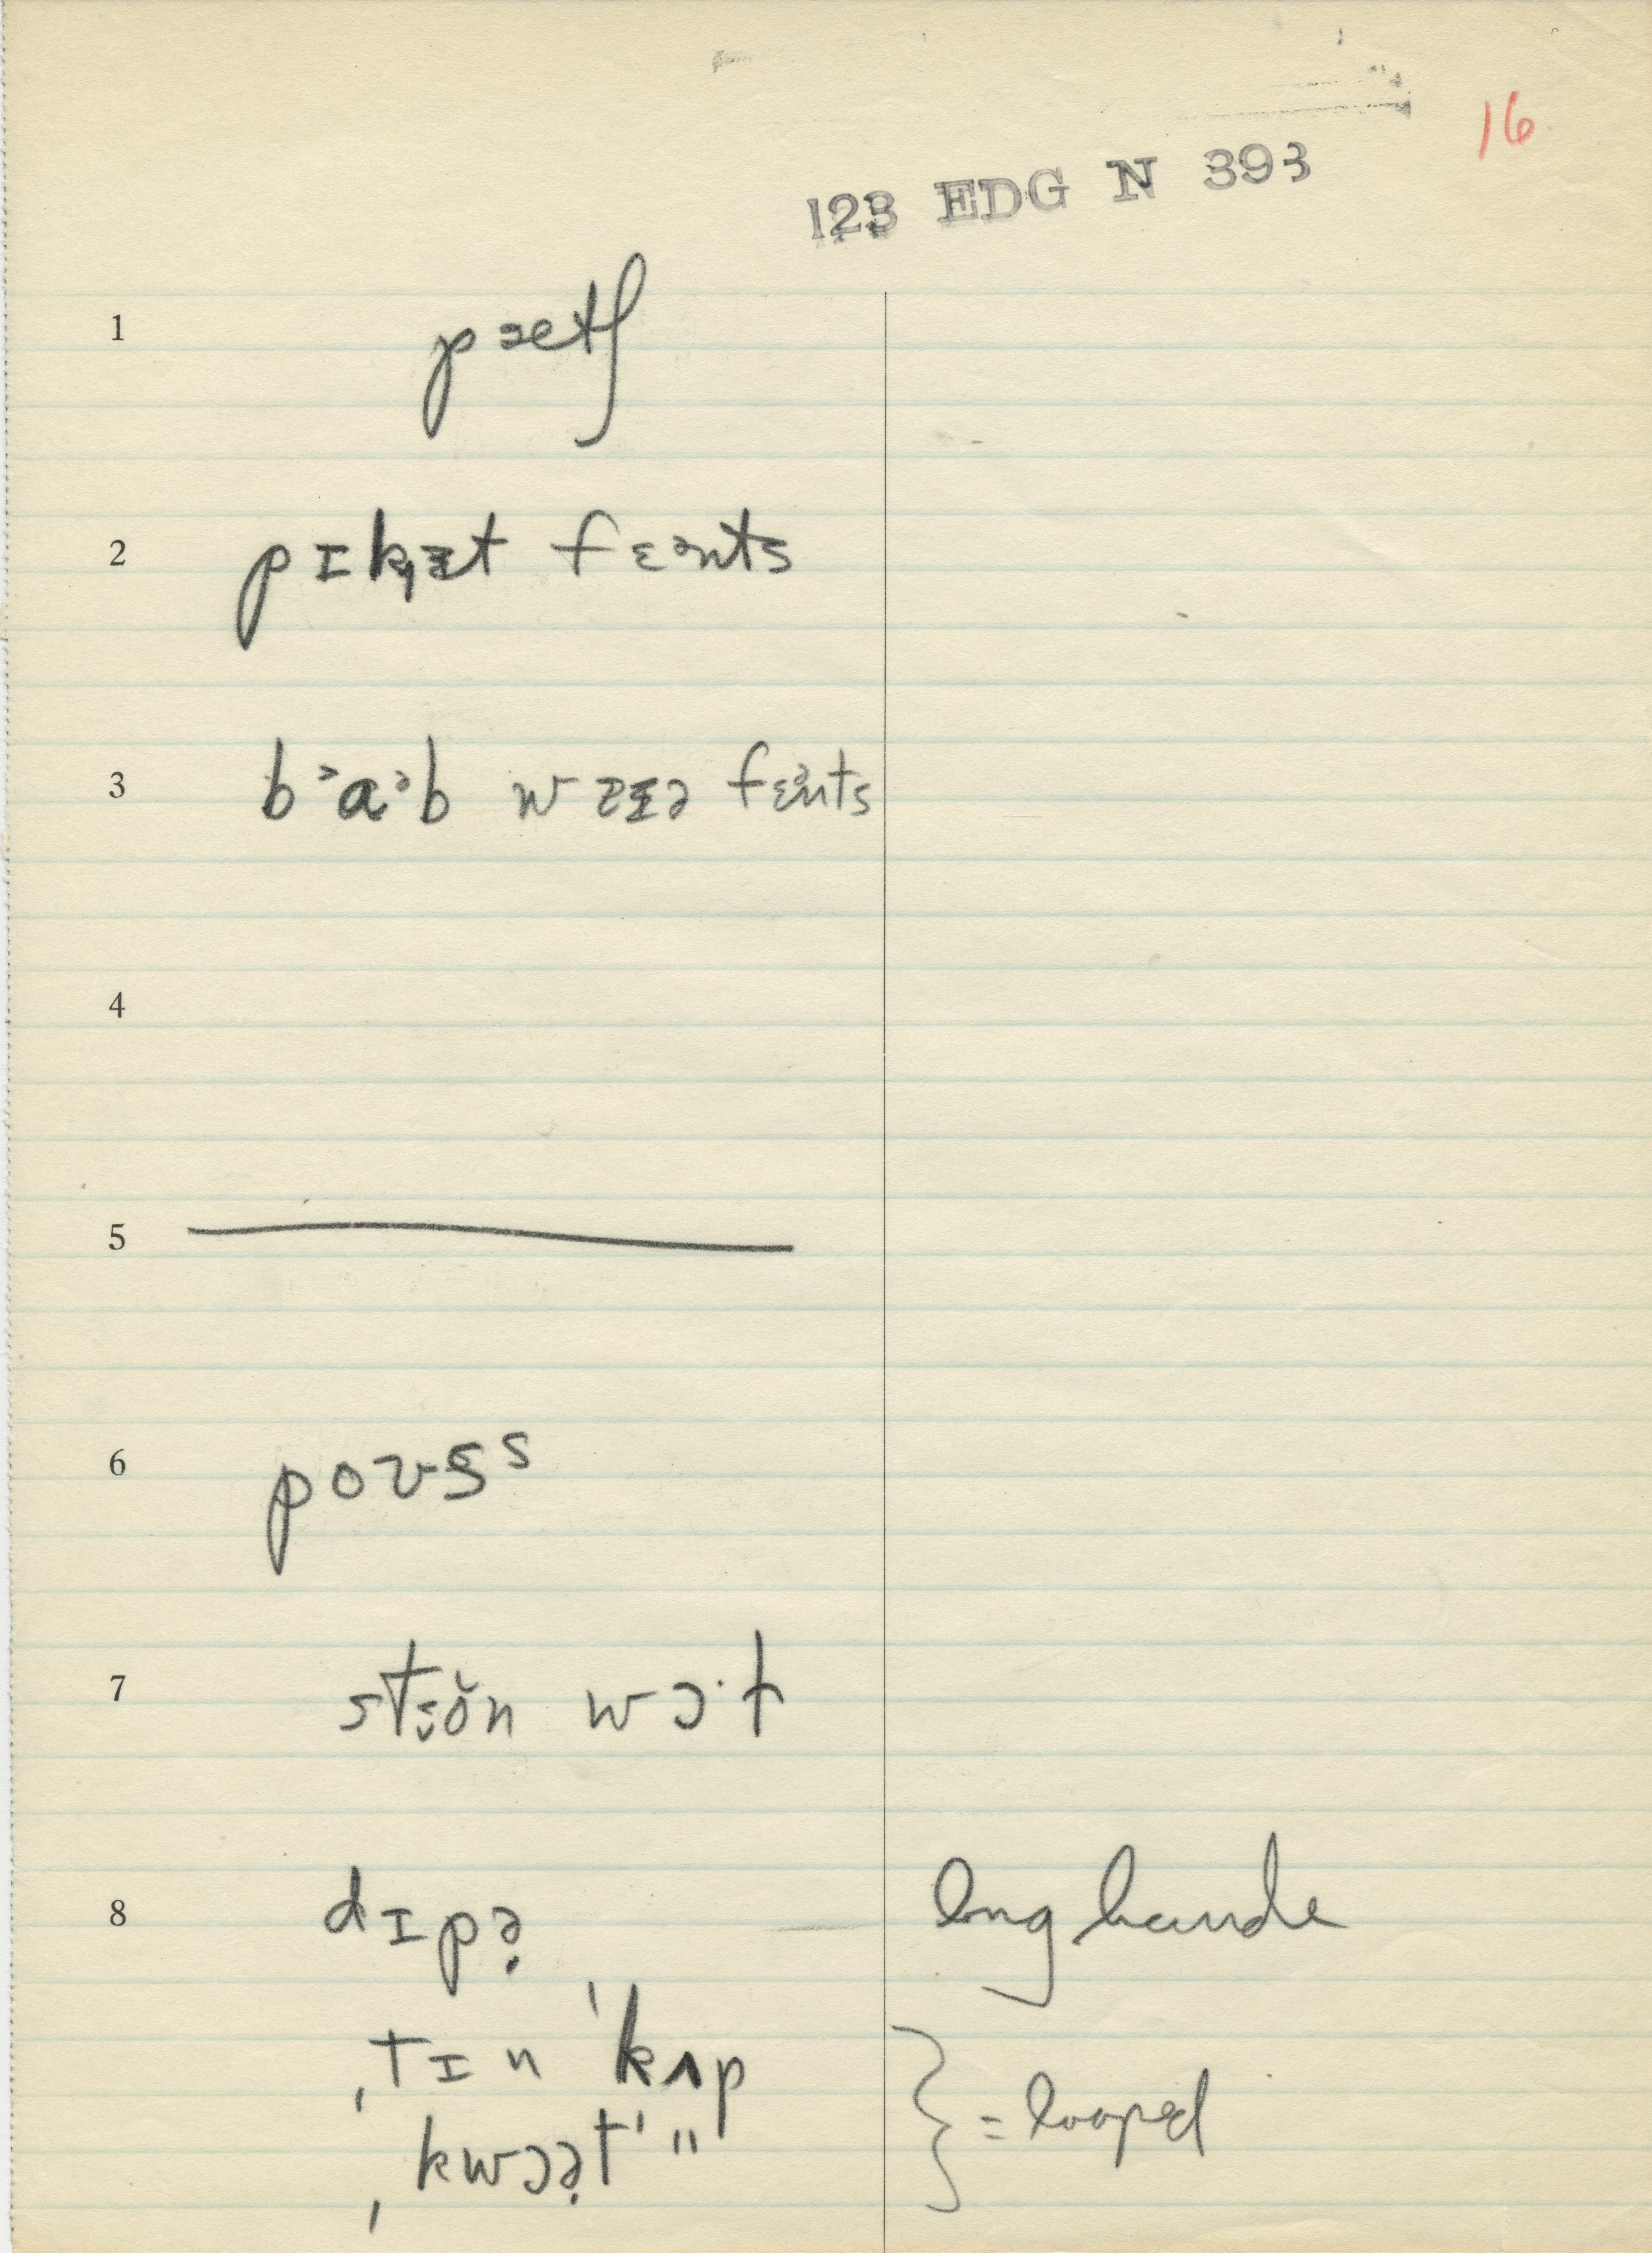 16
123 EDG N 393
1 pætʃ
2 pɪk̟ɪ̵t fɛənts
3 bᵊaᵊb wɪ̵ə fɛənts
4
5
6 poʊs̬ˢ
7 stɔ̆n wɔ·ɫ
8 dɪpə̣ long handle
ˌtɪn ˈkʌp
ˌkwɔə̣t ˈ" } = looped